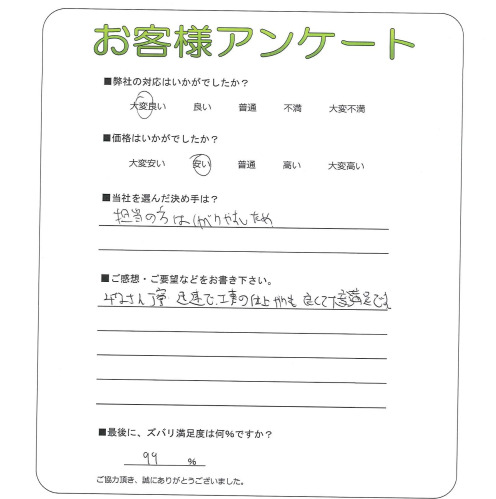 お客様アンケート
■弊社の対応はいかがでしたか？
大変良い 良い 普通 不満 大変不満
■価格はいかがでしたか？
大変安い 安い 普通 高い 大変高い
■当社を選んだ決め手は？
担当の方は やすしため
■ご感想・ご要望などをお書き下さい。
さん丁寧 迅速で、工事の仕上がりも 良くて大変満足でした
■最後に、ズバリ満足度は何％ですか？
99 ％
ご協力頂き、誠にありがとうございました。